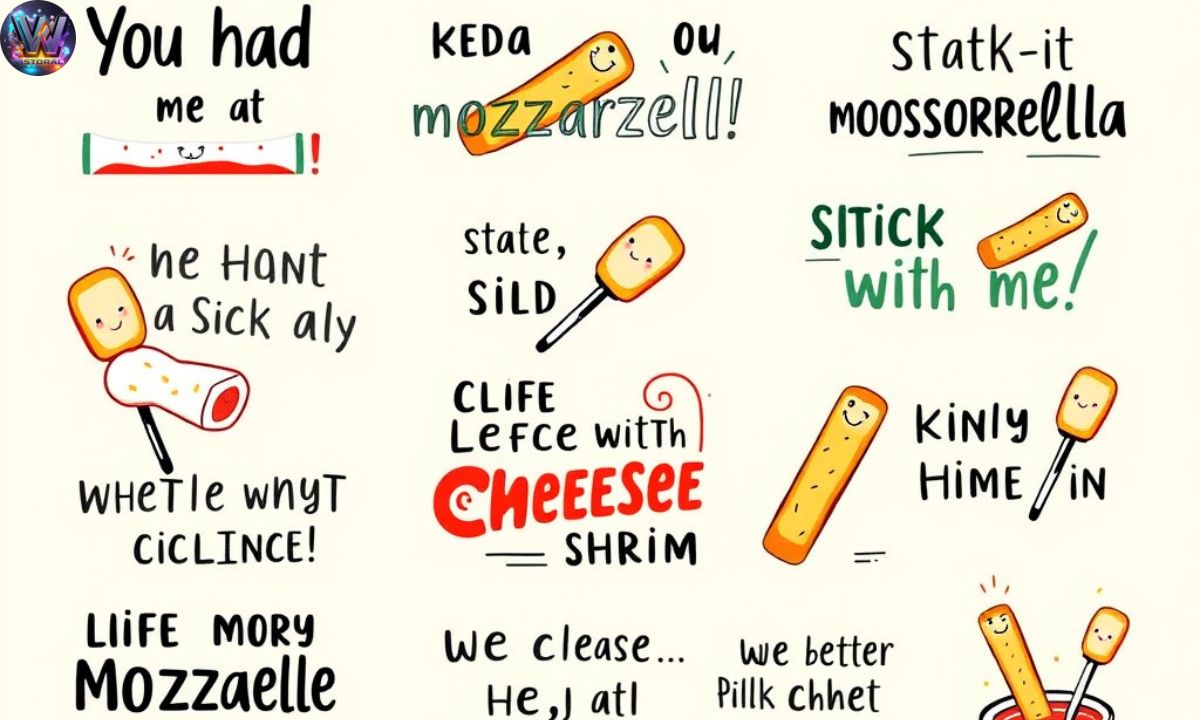 WISTORAL
You had
me at
!
KEDA OU
mozzarzell!
Statk-it
moossorrellla
he HANT
a Sick aly
WHeTle whyT
CiCLINCE!
state,
SiLD
SITiCK
with me!
CLIFE
LeFce wiTTh
CheEESeE
SHRiM
KiNly
HiME iN
LliFE MORY
Mozzaelle
We clease...
He,J atl
We better
Pillk chhet